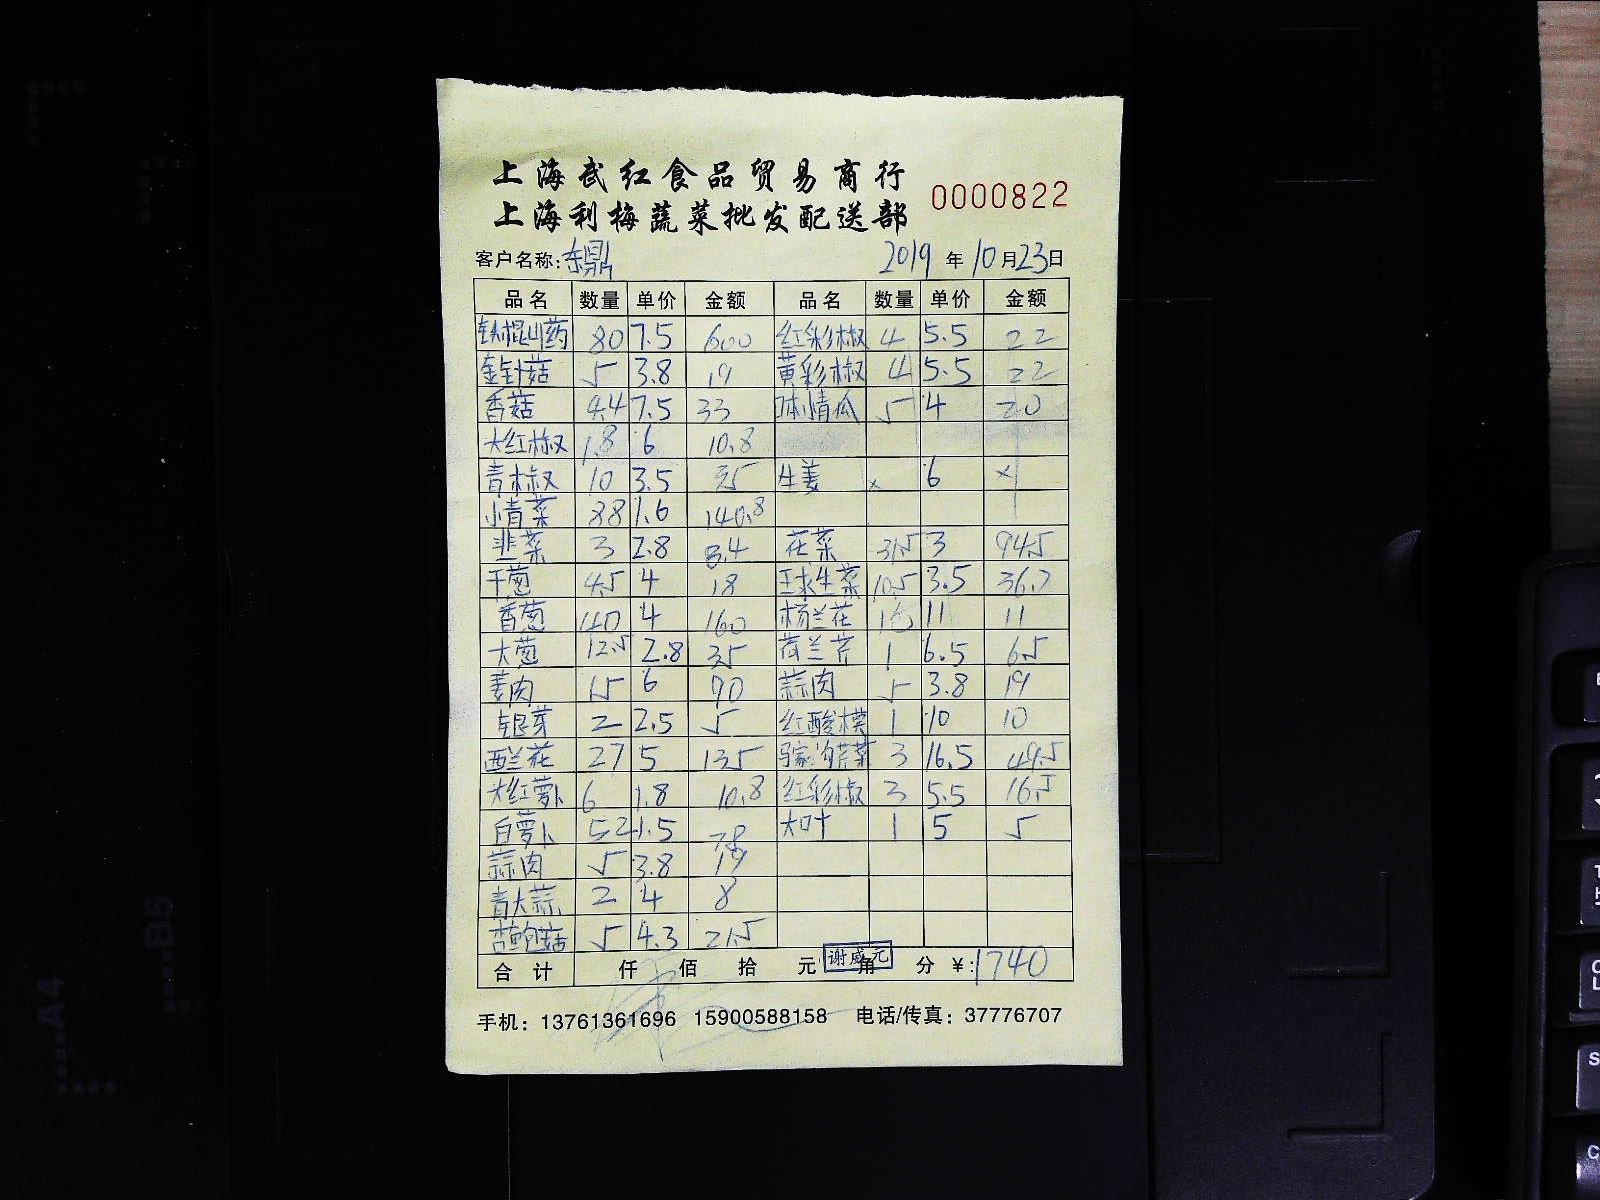 上海武红食品贸易商行
0000822
上海利梅蔬菜批发配送部
客户名称: 东鼎 2019 年 10 月 23 日
品名 数量 单价 金额 品名 数量 单价 金额
铁棍山药 80 7.5 600 红彩椒 4 5.5 22
金针菇 5 3.8 19 黄彩椒 4 5.5 22
香菇 4.4 7.5 33 5 4 20
大红椒 1.8 6 10.8
青椒 10 3.5 35 生姜 × 6 ×
小青菜 88 1.6 140.8
韭菜 3 2.8 8.4 花菜 31.5 3 94.5
干葱 4.5 4 18 球生菜 10.5 3.5 36.7
香葱 40 4 160 杨兰花 11 11
大葱 12.5 2.8 35 荷兰芹 1 6.5 6.5
姜肉 15 6 90 蒜肉 5 3.8 19
银芽 2 2.5 5 红酸模 1 10 10
西兰花 27 5 135 3 16.5 49.5
大红萝卜 6 1.8 10.8 红彩椒 3 5.5 16.5
白萝卜 52 1.5 78 大叶 1 5 5
蒜肉 5 3.8 19
青大蒜 2 4 8
杏鲍菇 5 4.3 21.5
合计 仟 佰 拾 元 角 分 ¥: 1740
谢威元
手机: 13761361696 15900588158 电话/传真: 37776707
B5
A4